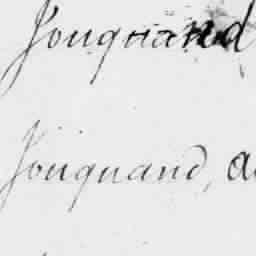 Jouquand
Jouquand, a